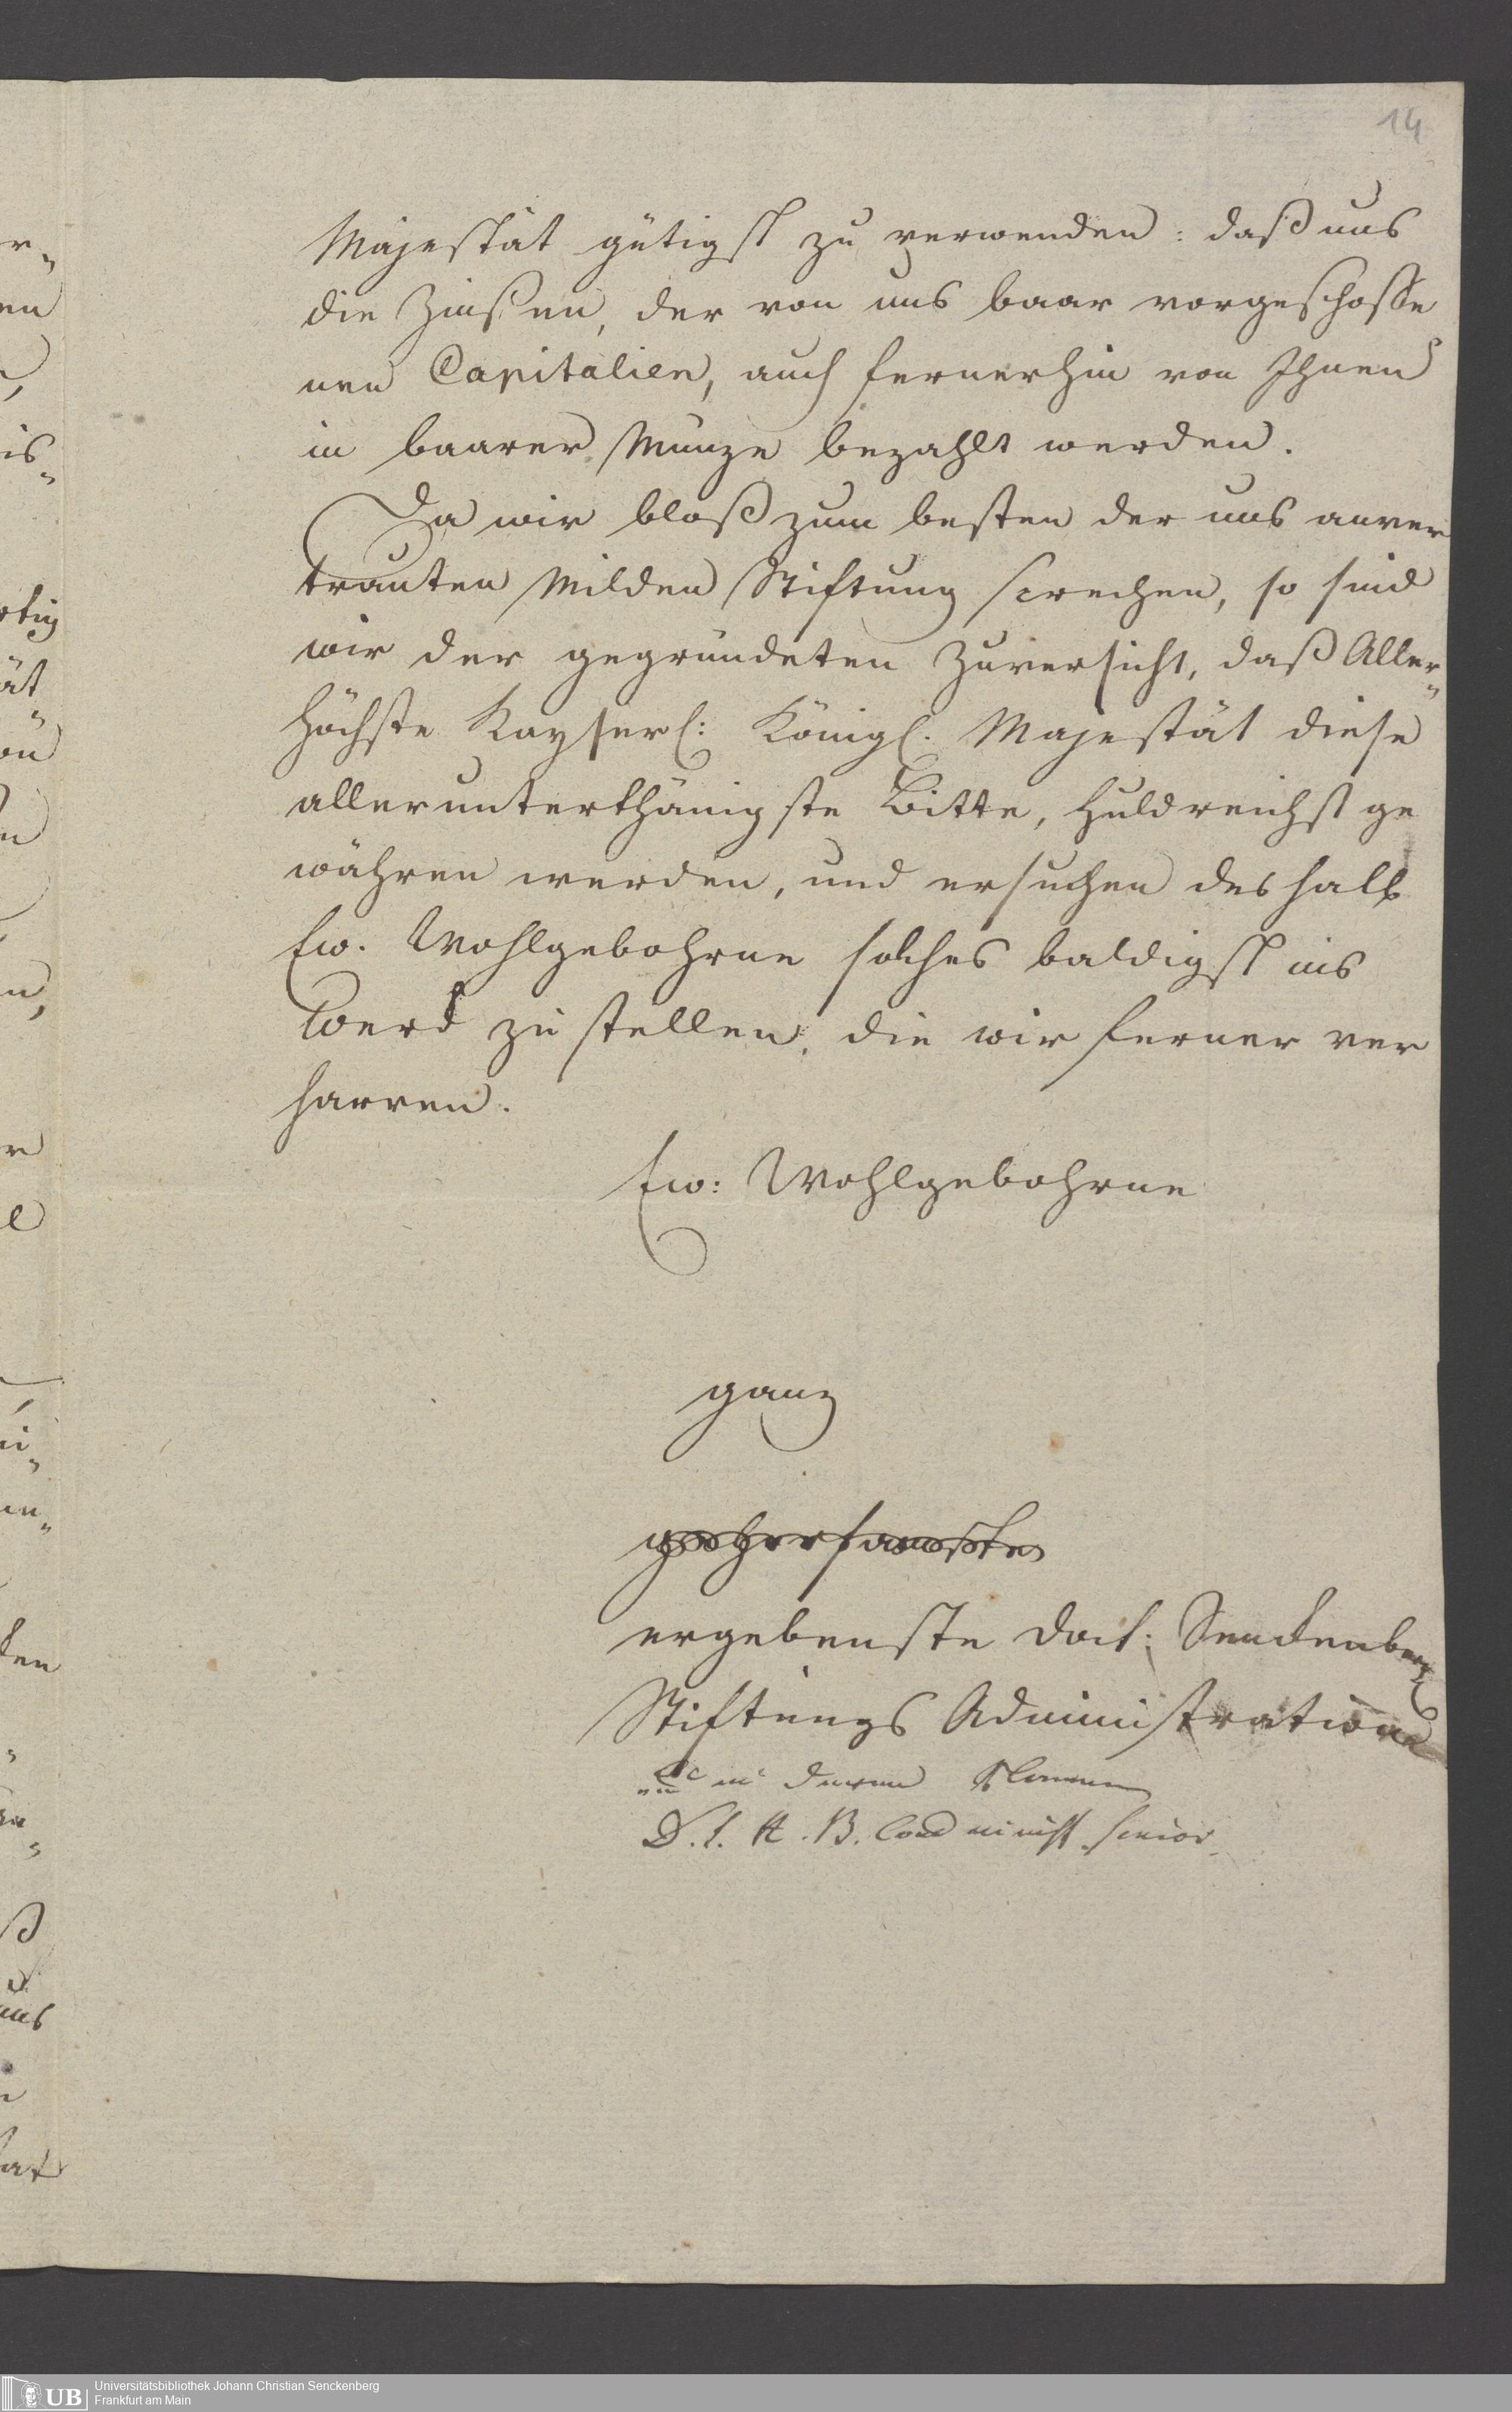 14
Majestät gütigst zu verwenden: daß uns
die Zinßen, der von uns baar vorgeschosse
nen Capitalien, auch fernerhin von Ihnen
in baarer Münze bezahlt werden.
Da wir bloß zum besten der uns anver
trauten Milden Stiftung sprechen, so sind
wir der gegründeten Zuversicht, daß Aller„
höchste Kayserl: Königl. Majestät diese
allerunterthänigste Bitte, huldreichst ge
währen werden, und ersuchen deshalb
Ew. Wohlgebohrne solches baldigst ins
Werck zu stellen, die wir ferner ver
harren.
Ew: Wohlgebohrne
ganz
gehorsamste
ergebenste Doct: Senckenberg
Stiftungs Administration
in deren Namen
senior
Universitätsbibliothek Johann Christian Senckenberg
Frankfurt am Main
UB